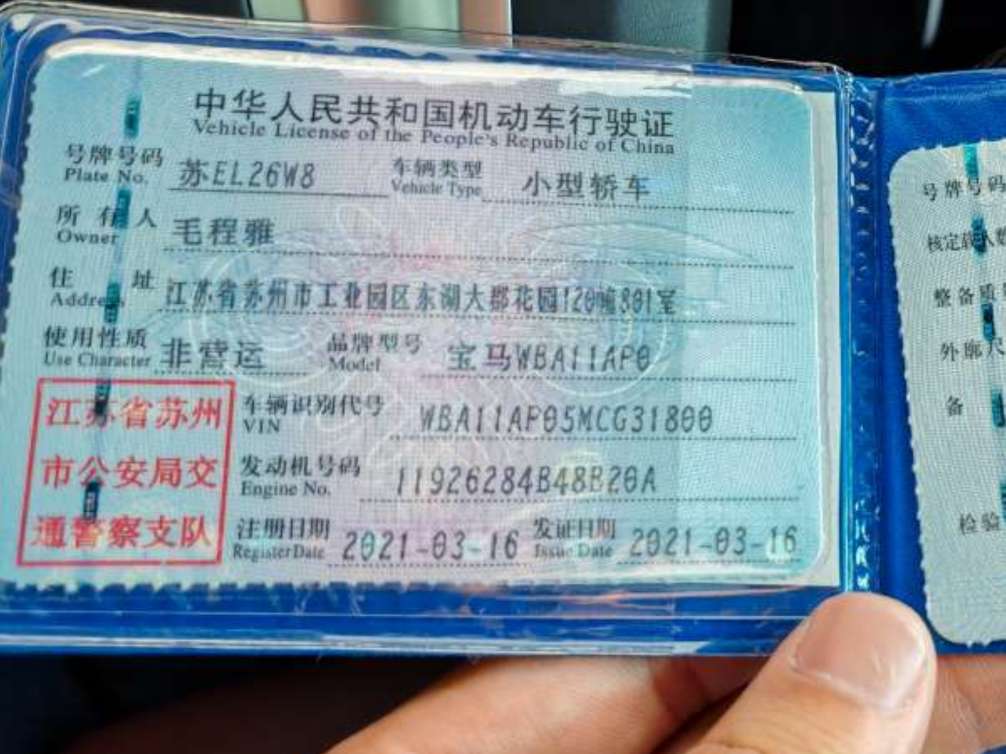 中华人民共和国机动车行驶证
Vehicle License of the People's Republic of China
号牌号码 苏EL26W8 车辆类型 小型轿车
Plate No. Vehicle Type
所有人 毛程雅
Owner
住址 江苏省苏州市工业园区东湖大郡花园120幢801室
Address
使用性质 非营运 品牌型号 宝马WBA11AP0
Use Character Model
江苏省苏州
市公安局交
通警察支队
车辆识别代号 WBA11AP05MCG31800
VIN
发动机号码 11926284B48B20A
Engine No.
注册日期 2021-03-16 发证日期 2021-03-16
Register Date Issue Date
号牌号码
核定载人数
整备质
外廓尺
备
检验